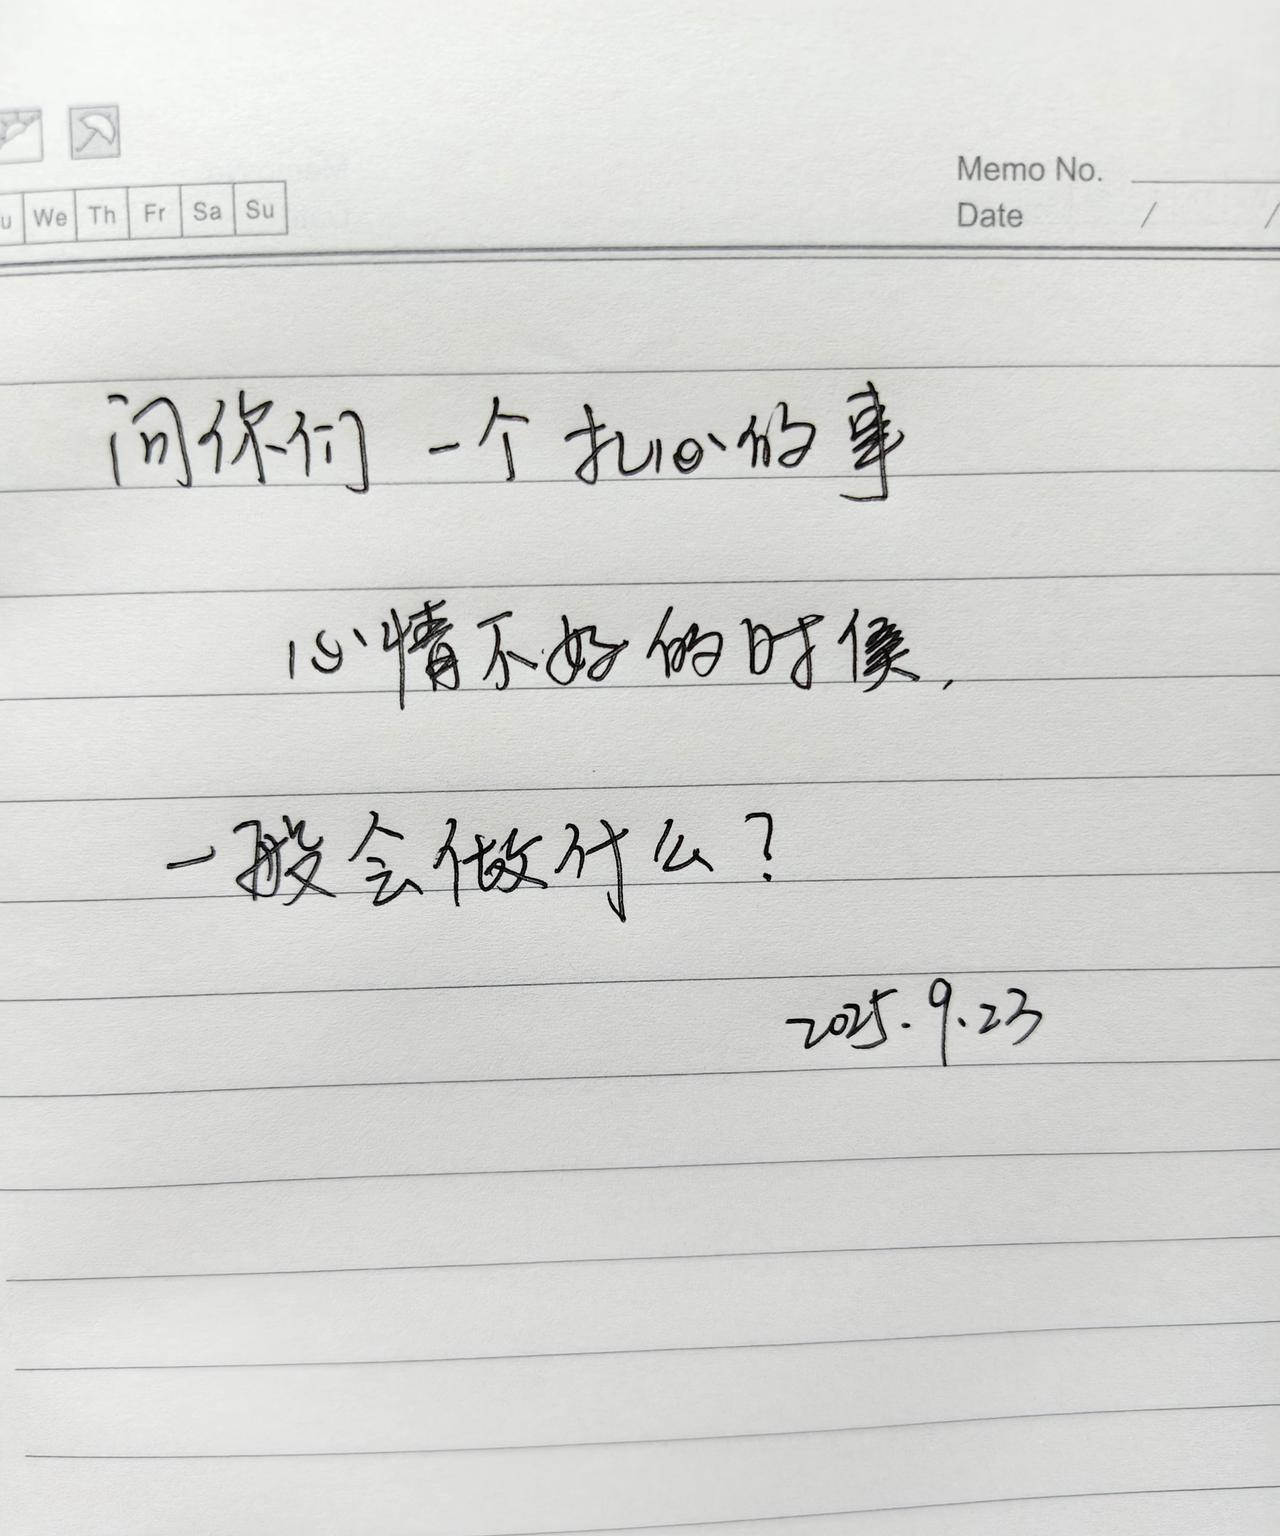 u We Th Fr Sa Su
Memo No.
Date / /
问你们一个扎心的事
心情不好的时候,
一般会做什么?
2025.9.23